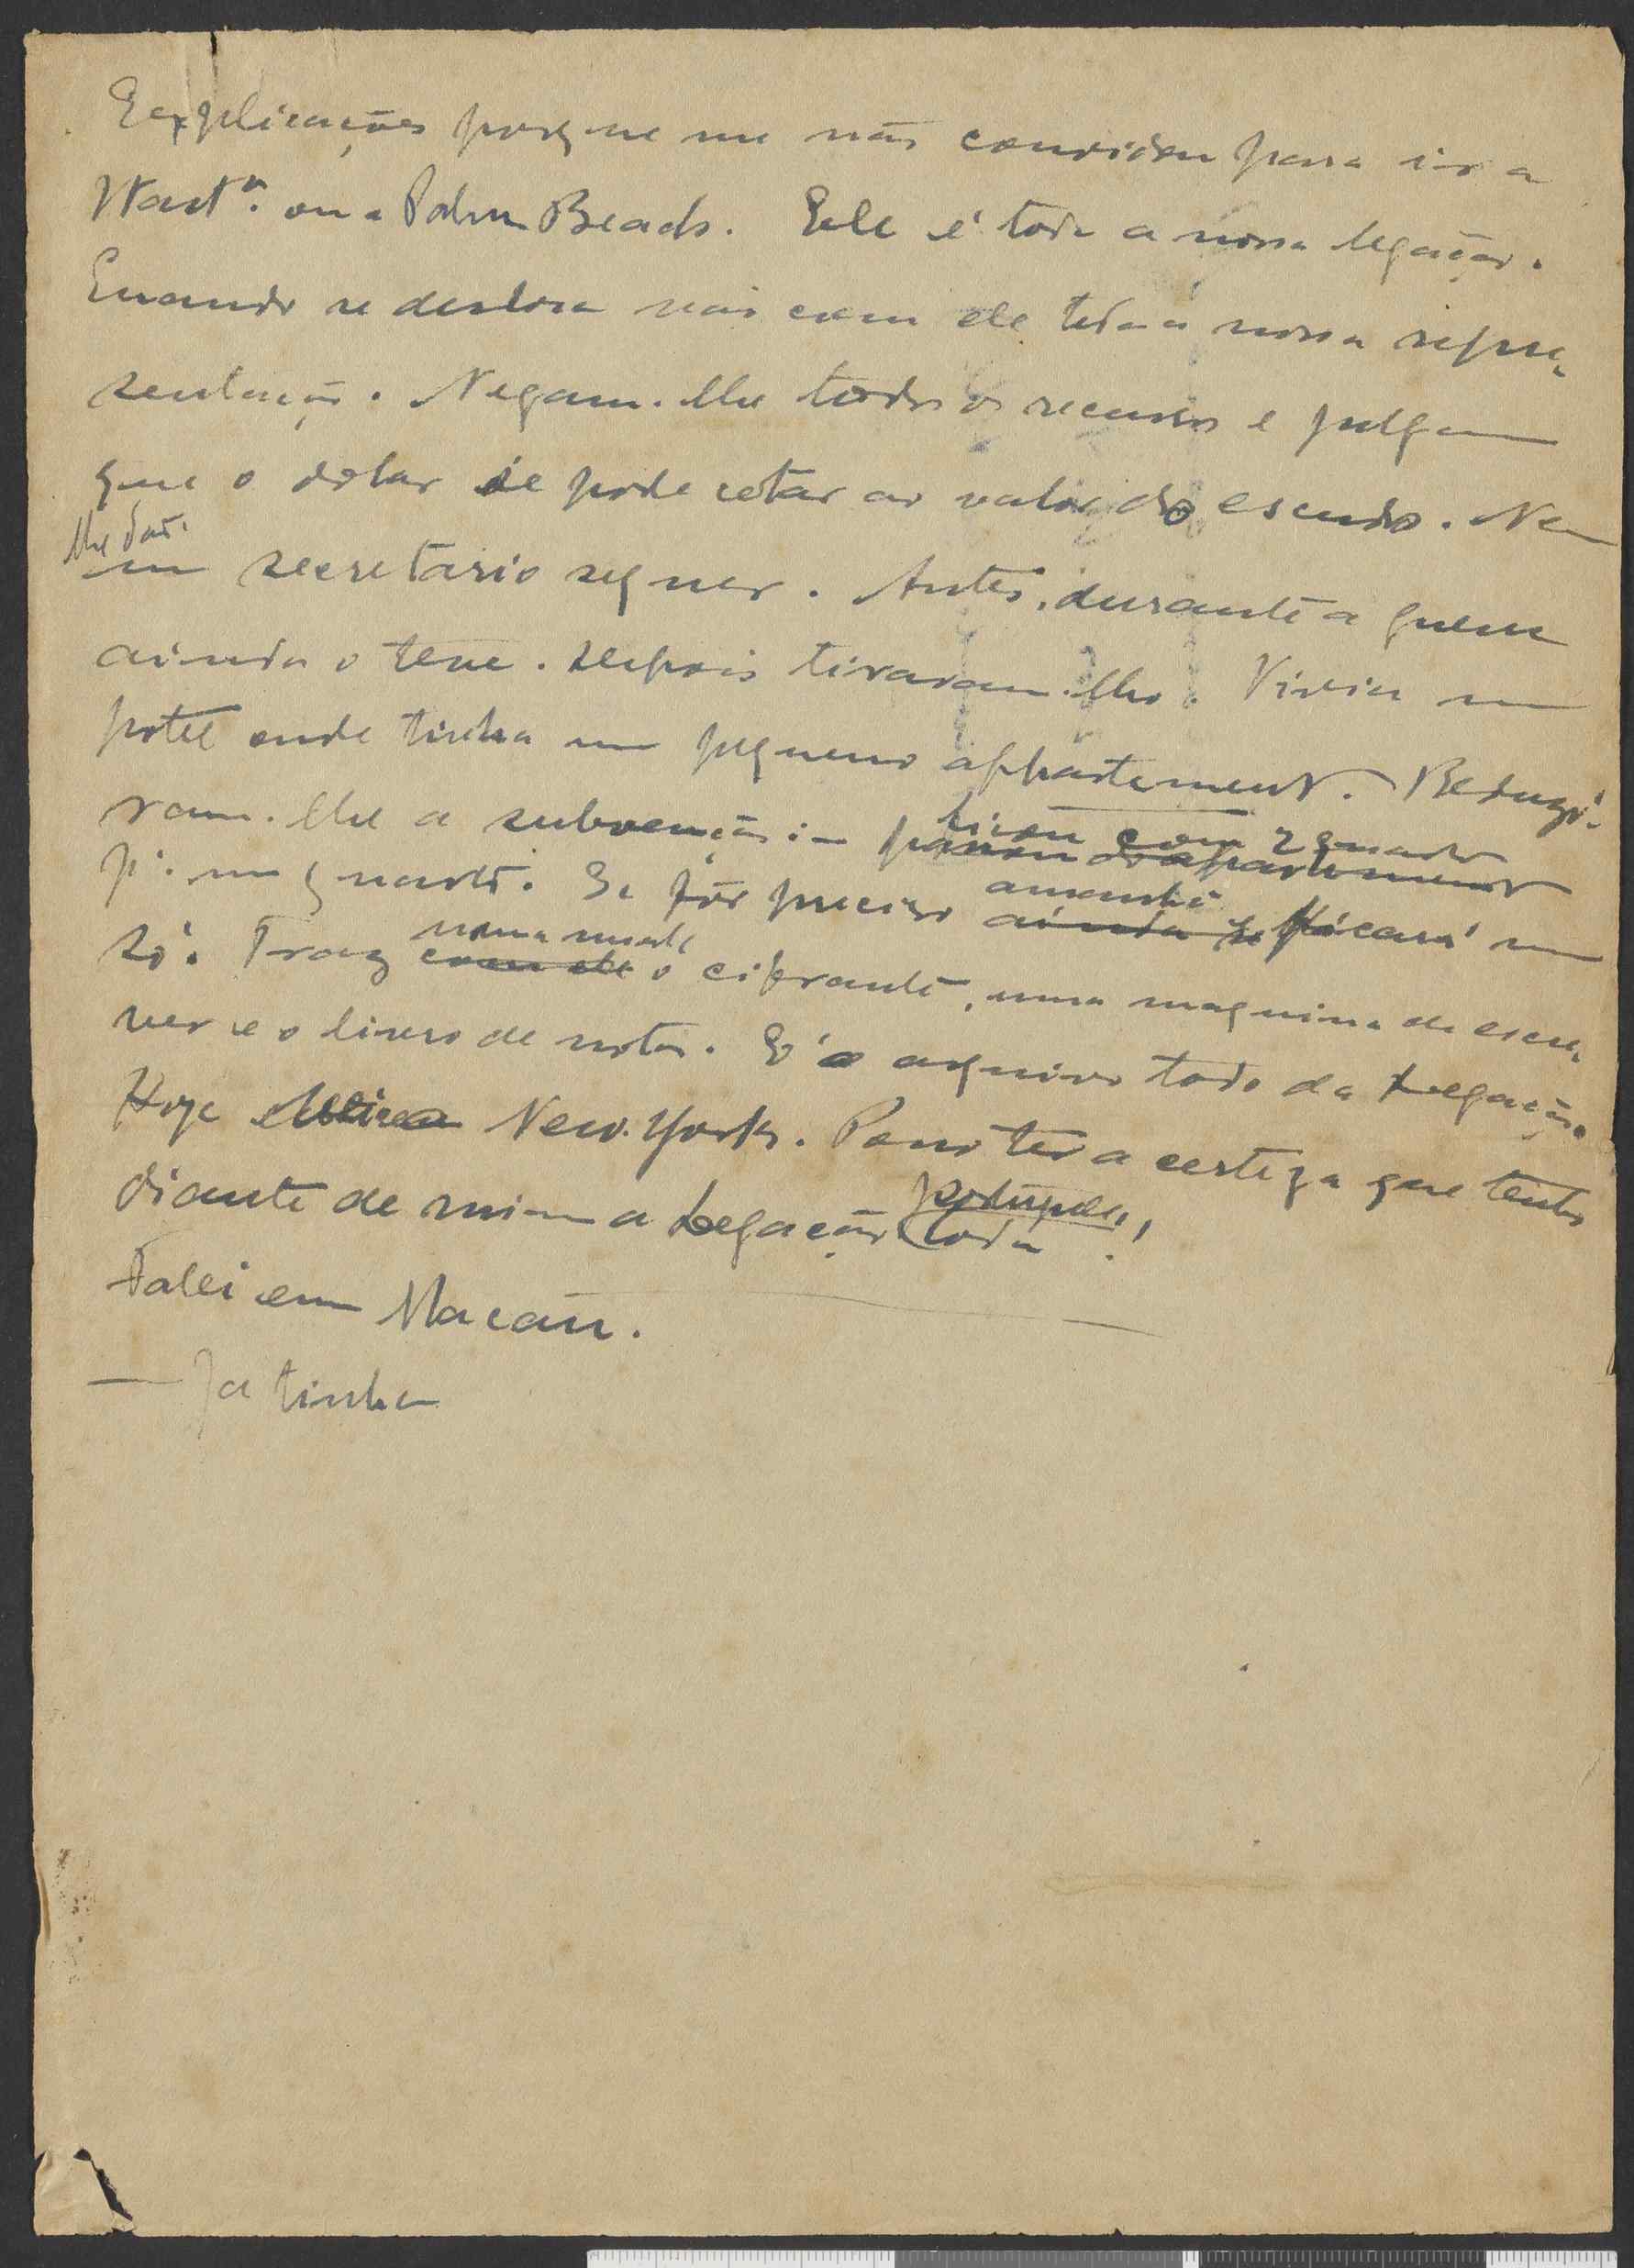 Explicações porque me não convidou para ir a
Washn. ou a Palm Beach. Elle é toda a nossa legação.
Quando se desloca vai com ele toda a nossa repre-
sentação. Negam-lhe todos os recursos e julgam
que o dolar se pode cotar ao valor do escudo. Nem
lhe dão
um secretario sequer. Antes, durante a guerra
ainda o teve. Depois tiraram-lho. Vivia num
hotel onde tinha um pequeno appartement. Reduzi-
ram-lhe a subvenção e
ficou com 2 quartos
passou do appartement
pª. um quarto. Se fôr preciso
amanhã
ainda se ficará num
só. Traz
numa mala
com ele o cifrante, uma maquina de escre-
ver e o livro de notas. É o arquivo todo da Legação.
Hoje New-York. Posso ter a certeza que tenho
diante de mim a Legação
portuguesa
toda!
Falei em Macau.
— Ja tinha